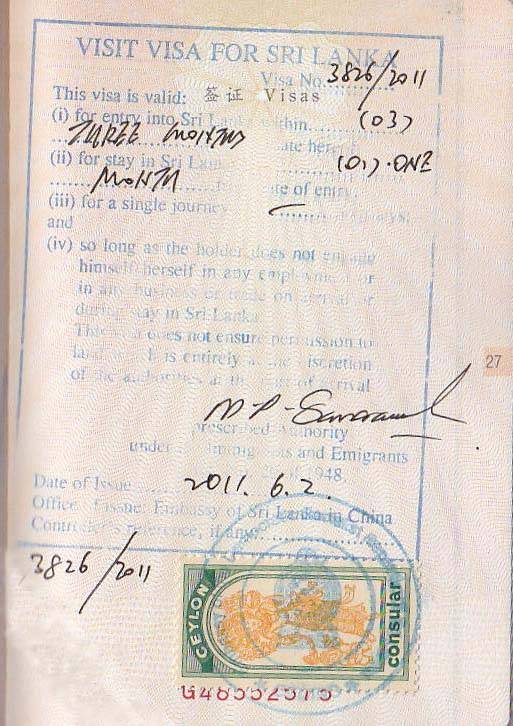 VISIT VISA FOR SRI LANKA
Visa No. 3826/2011
This visa is valid: 签证 Visas
(i) for entry into Sri Lanka within (03)
THREE MONTHS date hereof
(ii) for stay in Sri Lanka (01) ONE
MONTH date of entry,
(iii) for a single journey
and
(iv) so long as the holder does not engage
himself/herself in any employment or
in any business or trade on arrival or
during stay in Sri Lanka
This visa does not ensure permission to
land. It is entirely at the discretion
of the authorities at the of arrival
27
prescribed Authority
under Immigrants and Emigrants
1948.
Date of Issue 2011. 6. 2.
Office of issue: Embassy of Sri Lanka in China
Controller's reference, if any:
3826/2011
CEYLON
consular